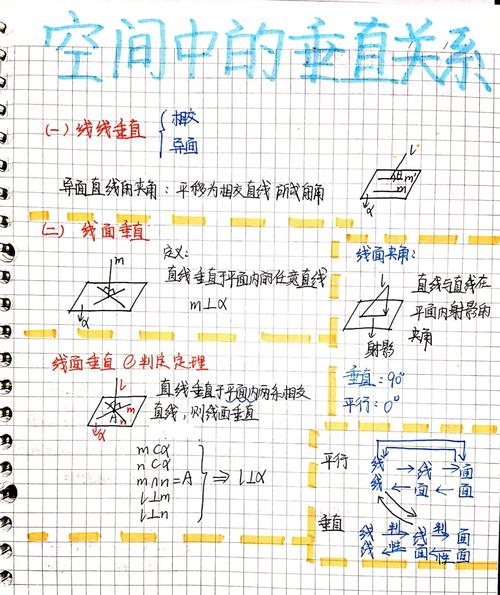 空间中的垂直关系
(一) 线线垂直
相交
异面
异面直线的夹角：平移为相交直线所成的角
l
m'
m
α
(二) 线面垂直
定义：
直线垂直于平面内的任意直线
m⊥α
m
α
线面夹角：
直线与直线在
平面内射影的
夹角
射影
垂直：90°
平行：0°
线面垂直的判定定理
直线垂直于平面内两条相交
直线，则线面垂直
l
A
n
m
α
m⊂α
n⊂α
m∩n=A
l⊥m
l⊥n
⇒ l⊥α
平行
线 → 线 → 面
线 ← 面 ← 面
垂直
线 判 线 判 面
线 性 面 性 面